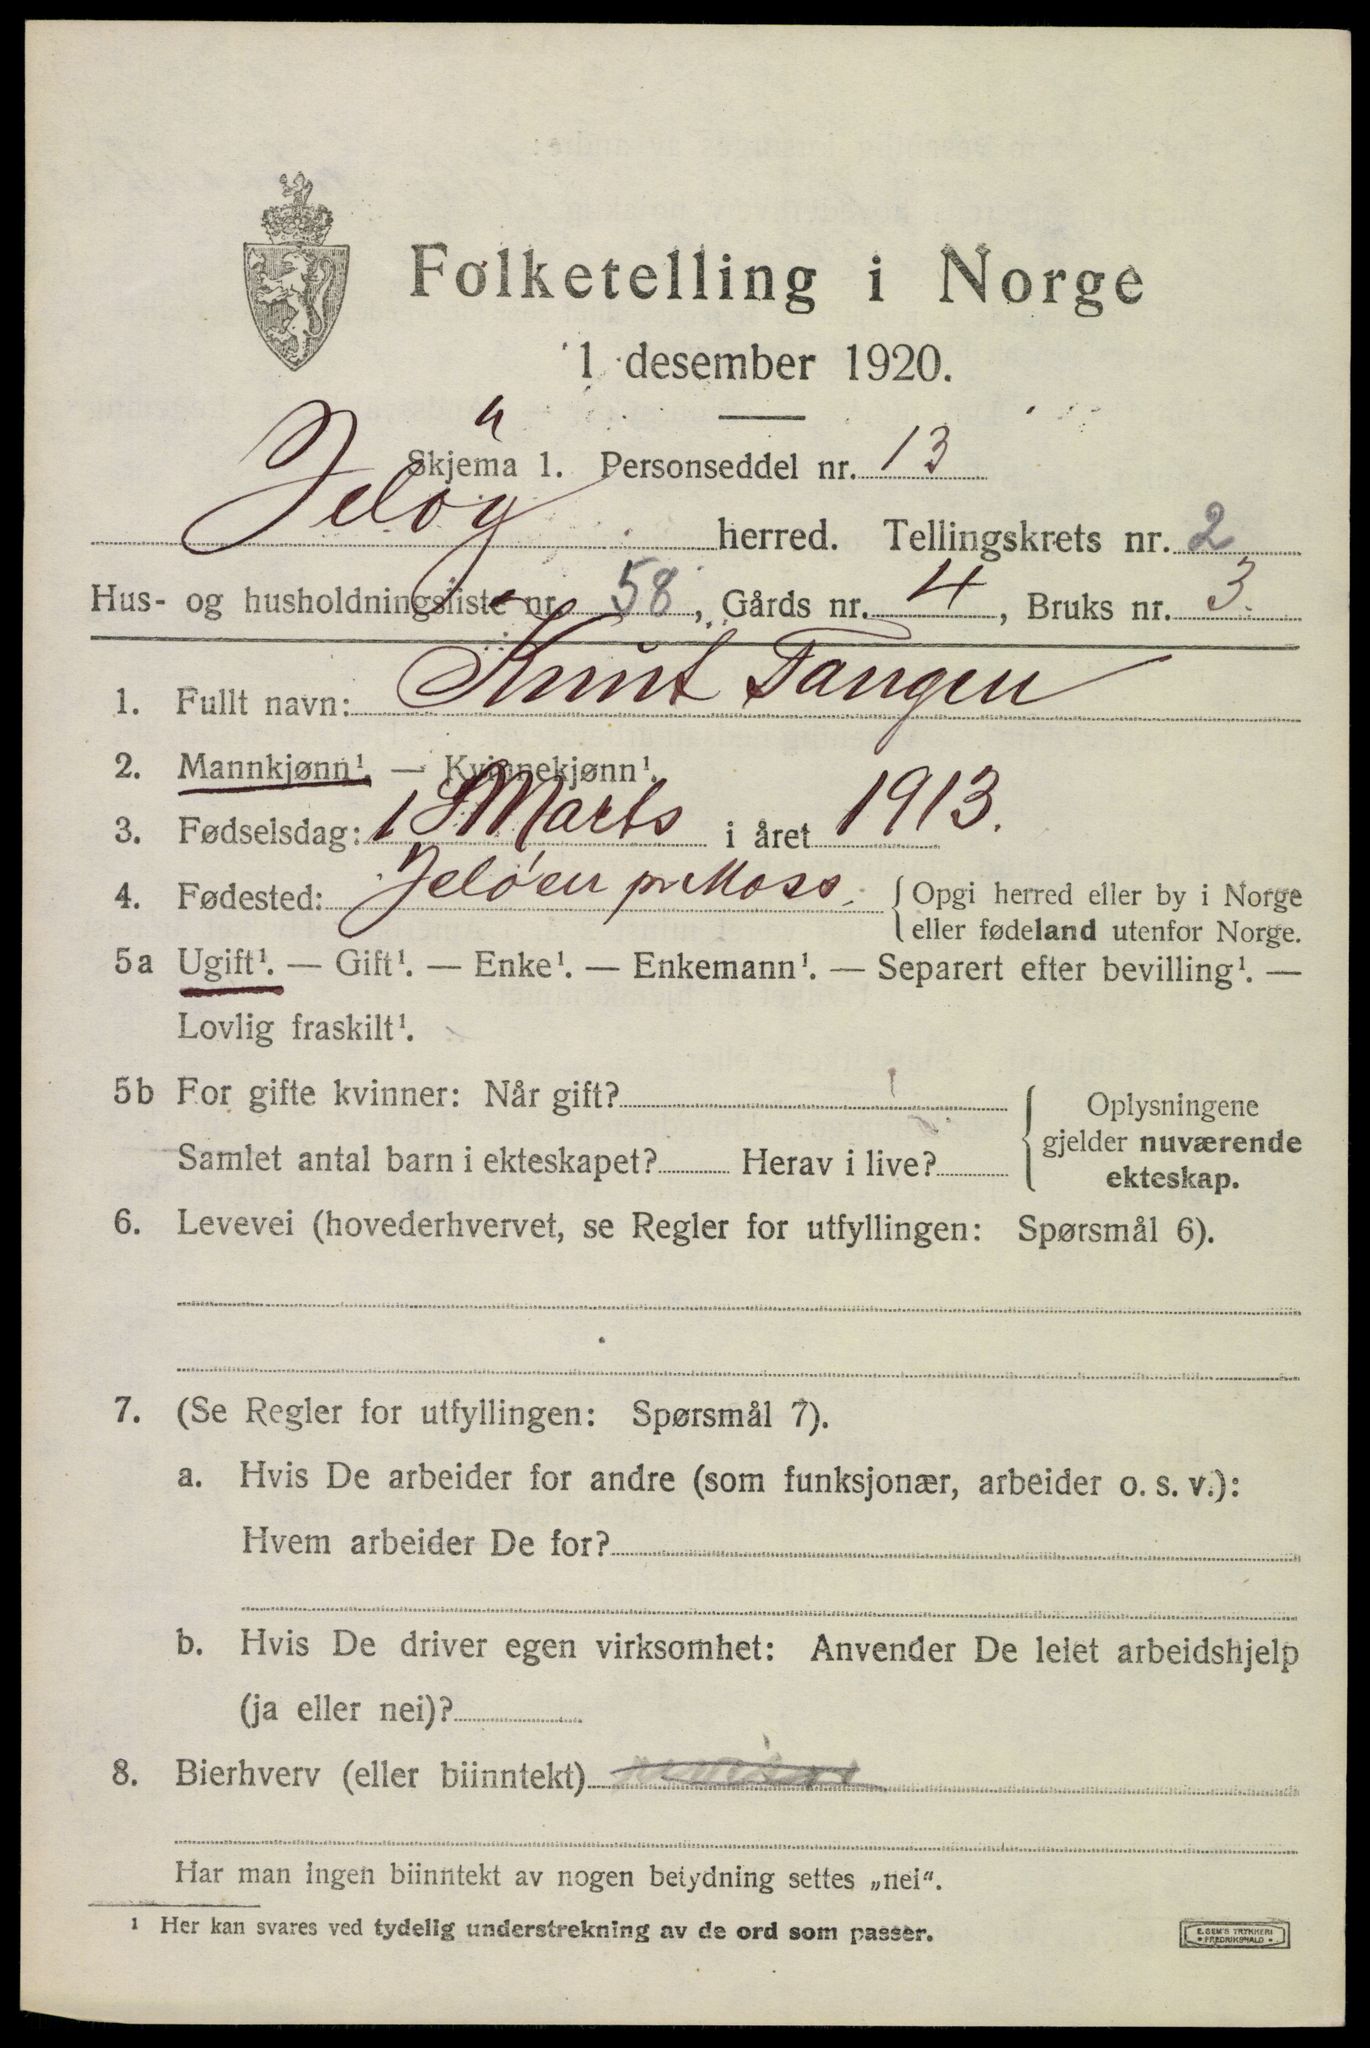 Folketelling i Norge
1 desember 1920.
Skjema 1. Personseddel nr. 13
Jeløy herred. Tellingskrets nr. 2
Hus- og husholdningsliste nr. 58, Gårds nr. 4, Bruks nr. 3.
1. Fullt navn: Knut Tangen
2. Mannkjønn¹. — Kvinnekjønn¹.
3. Fødselsdag: 1 Marts i året 1913.
4. Fødested: Jeløen pr Moss. { Opgi herred eller by i Norge
eller fødeland utenfor Norge.
5a Ugift¹. — Gift¹. — Enke¹. — Enkemann¹. — Separert efter bevilling¹. —
Lovlig fraskilt¹.
5b For gifte kvinner: Når gift?
Samlet antal barn i ekteskapet? Herav i live?
Oplysningene
gjelder nuværende
ekteskap.
6. Levevei (hovederhvervet, se Regler for utfyllingen: Spørsmål 6).
7. (Se Regler for utfyllingen: Spørsmål 7).
a. Hvis De arbeider for andre (som funksjonær, arbeider o. s. v.):
Hvem arbeider De for?
b. Hvis De driver egen virksomhet: Anvender De leiet arbeidshjelp
(ja eller nei)?
8. Bierhverv (eller biinntekt)
Har man ingen biinntekt av nogen betydning settes „nei“.
¹ Her kan svares ved tydelig understrekning av de ord som passer.
E. SEM'S TRYKKERI
FREDRIKSHALD